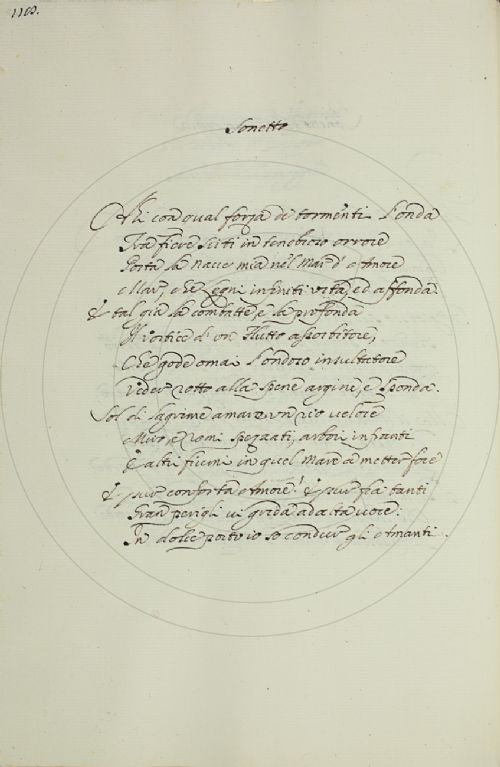 1109.
Sonetto
Ahi con qual forza di tormenti L'onda
Fra fiere Sirti in tenebroso orrore
Porta la Nave mia nel Mar d'Amore
Mar, che ogni infiniti vita, ed affonda.
E tal già la combatte, e la profonda
Il vortice d'un Flutto assorbitore,
Che gode omai l'ondoso insultatore
Veder rotto alla Spene argine, e Sponda.
Sol di lagrime amare un rio veloce
Miro, e remi spezzati, arbori infranti
E altri fiumi in quel Mare a metter foce
E pur conforta Amore! E pur fra tanti
Gran perigli vi grida ad alta voce:
In dolce porto io so condur gli Amanti.